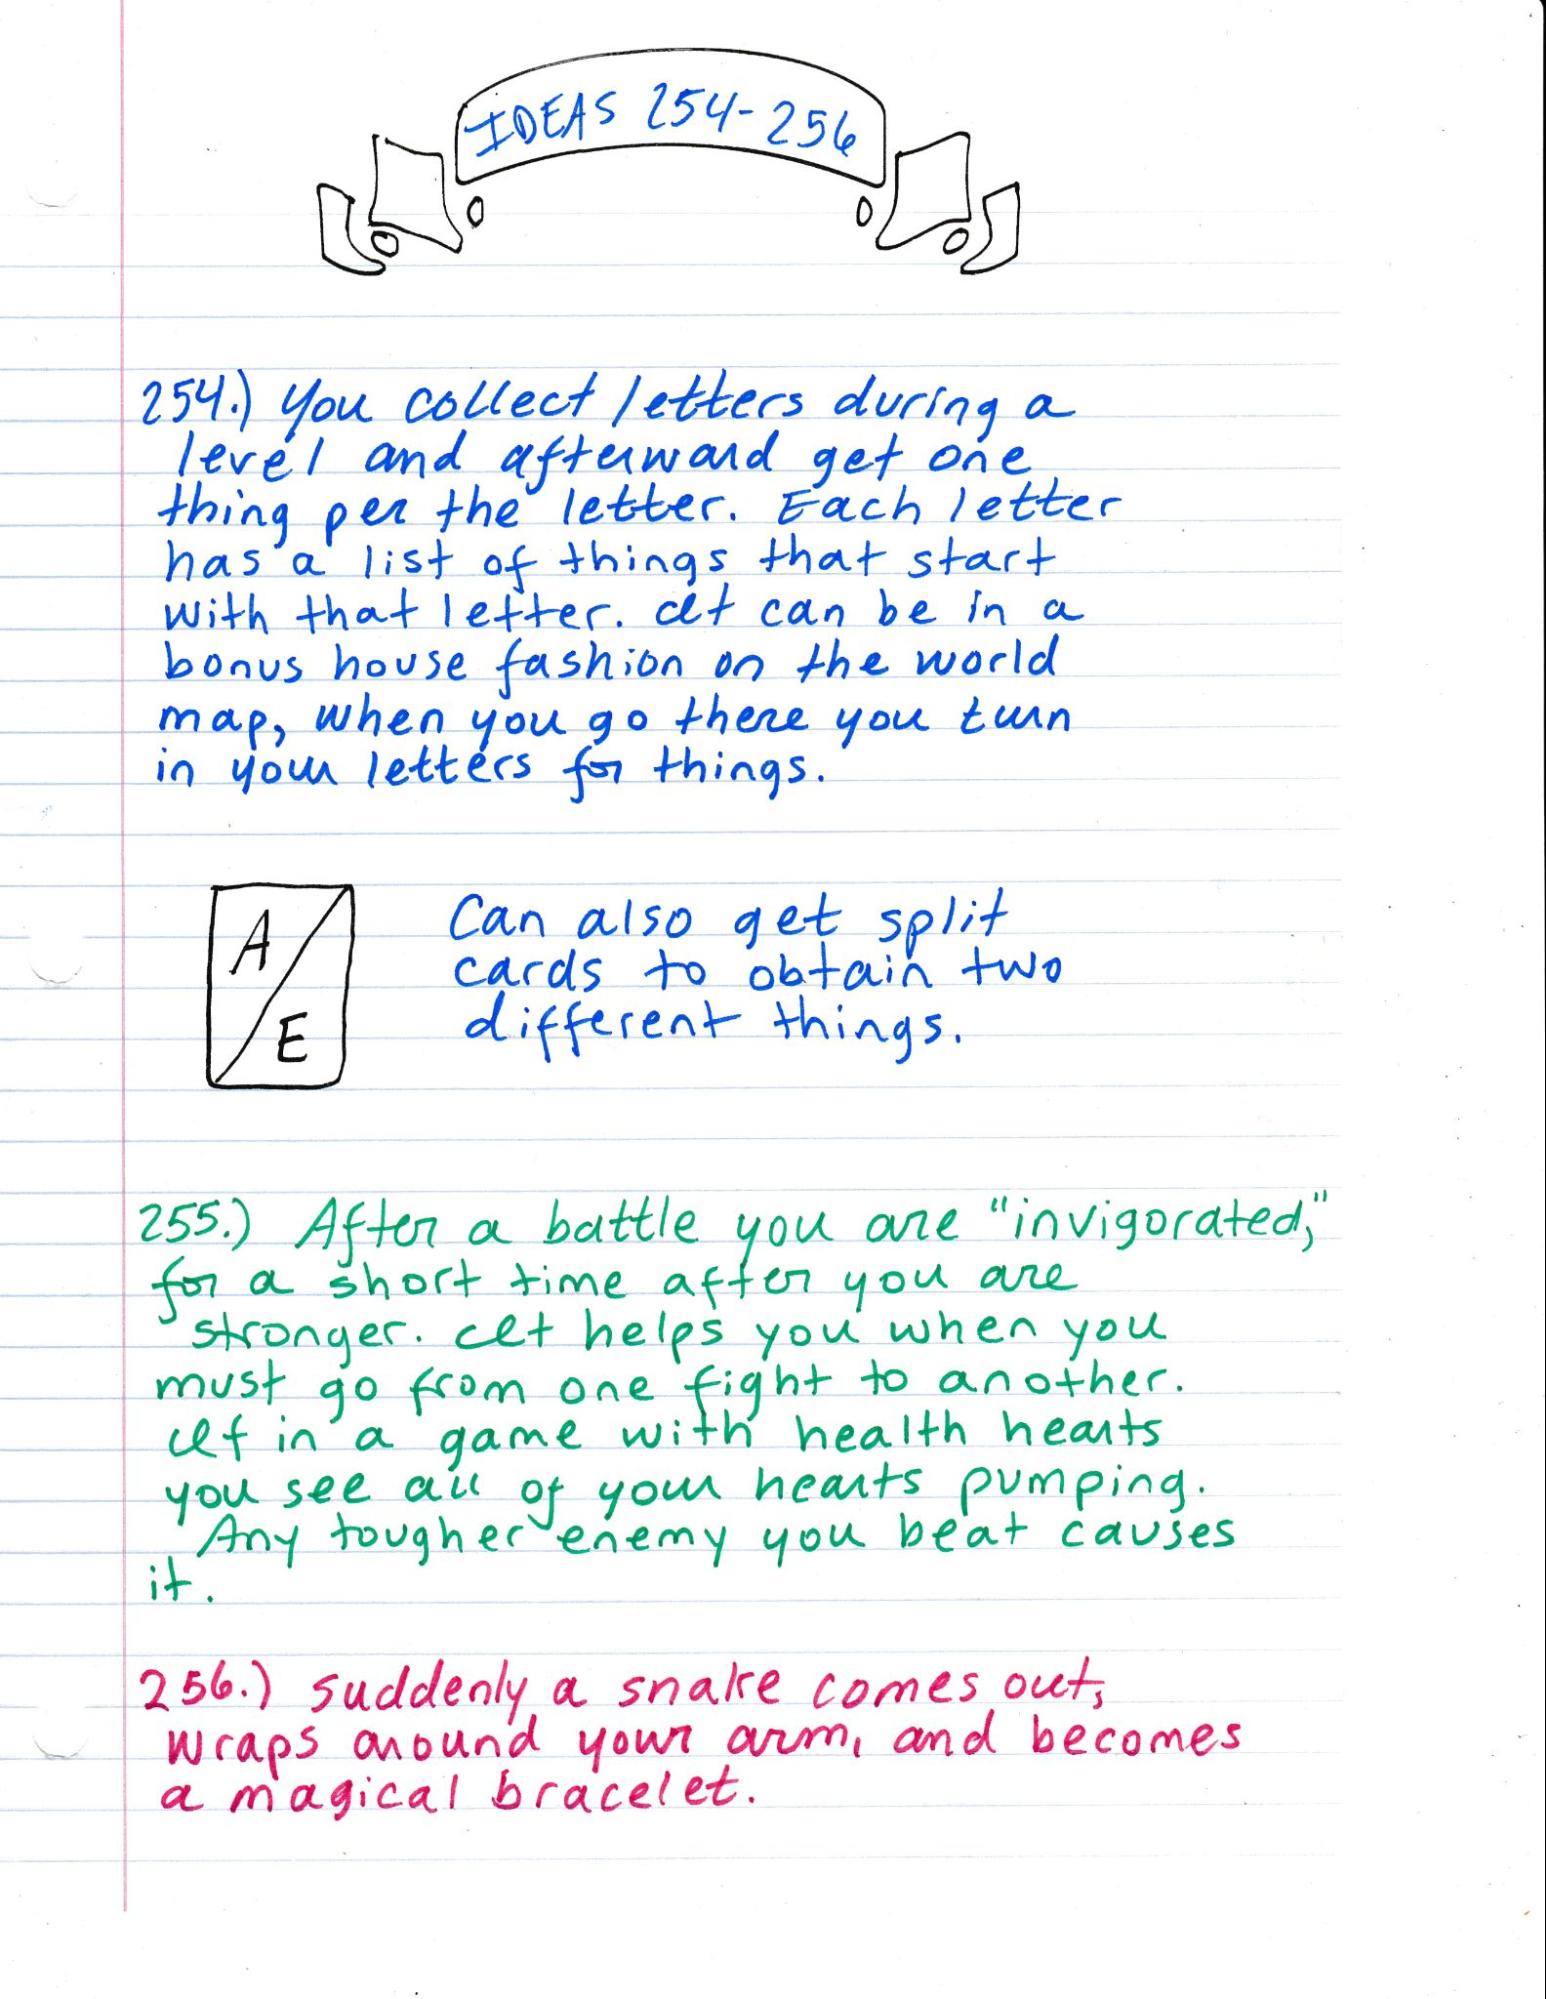 IDEAS 254-256
254.) You collect letters during a
level and afterward get one
thing per the letter. Each letter
has a list of things that start
with that letter. It can be in a
bonus house fashion on the world
map, when you go there you turn
in your letters for things.
A
E
Can also get split
cards to obtain two
different things.
255.) After a battle you are "invigorated,"
for a short time after you are
stronger. It helps you when you
must go from one fight to another.
If in a game with health hearts
you see all of your hearts pumping.
Any tougher enemy you beat causes
it.
256.) Suddenly a snake comes out,
wraps around your arm, and becomes
a magical bracelet.